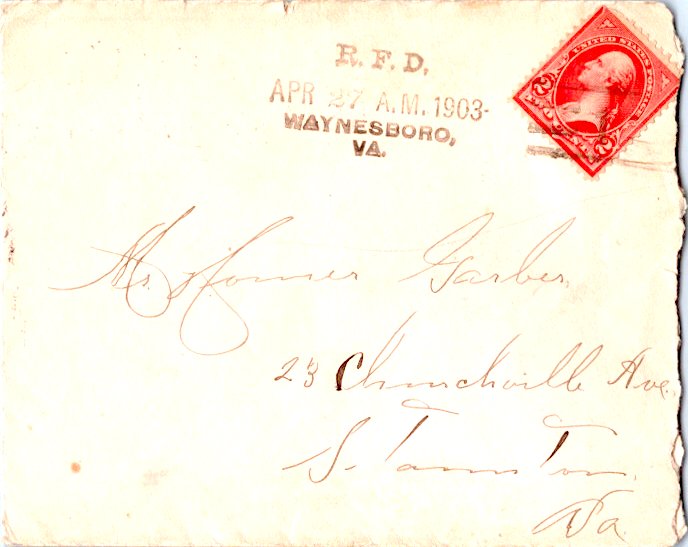 R. F. D.
APR 27 A.M. 1903-
WAYNESBORO,
VA.
UNITED STATES POSTAGE
2 2
Mr. Homer Garber
23 Churchville Ave.
Staunton
Va.